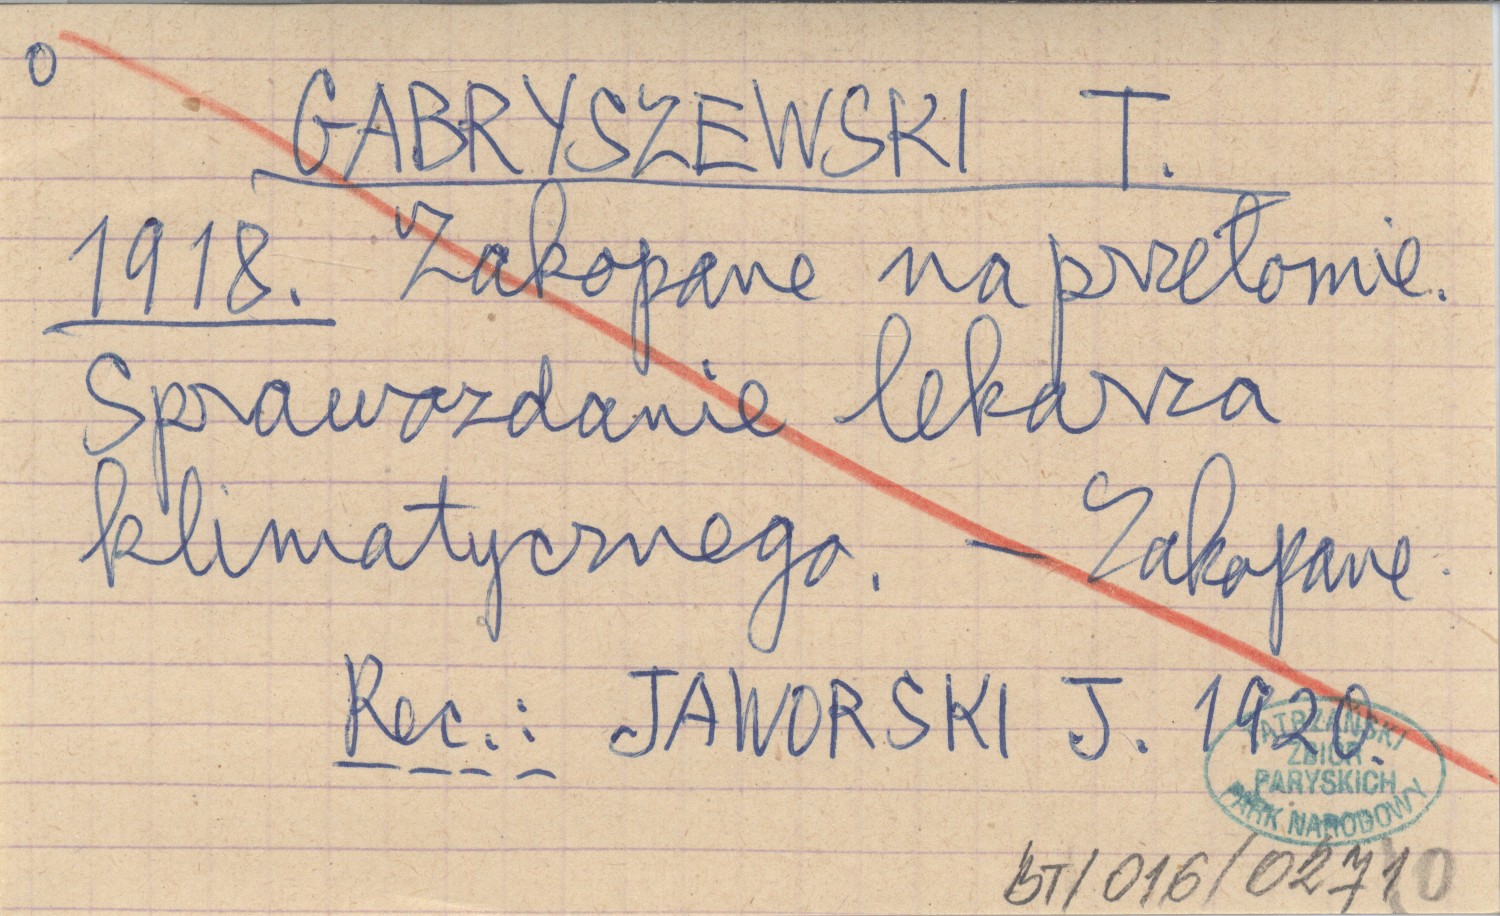 O
GABRYSZEWSKI T.
1918. Zakopane na przełomie.
Sprawozdanie lekarza
klimatycznego. — Zakopane.
Rec.: JAWORSKI J. 1920.
TATRZAŃSKI
ZBIÓR
PARYSKICH
PARK NARODOWY
BT/016/0271